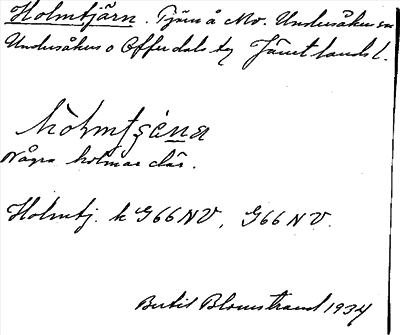 Holmtjärn. Tjärn å Mo. Undersåkers sn
Undersåkers o Offerdals tg Jämtlands l.
Några holmar där.
Holmtj. k G66NV, G66NV.
Bertil Blomstrand 1934